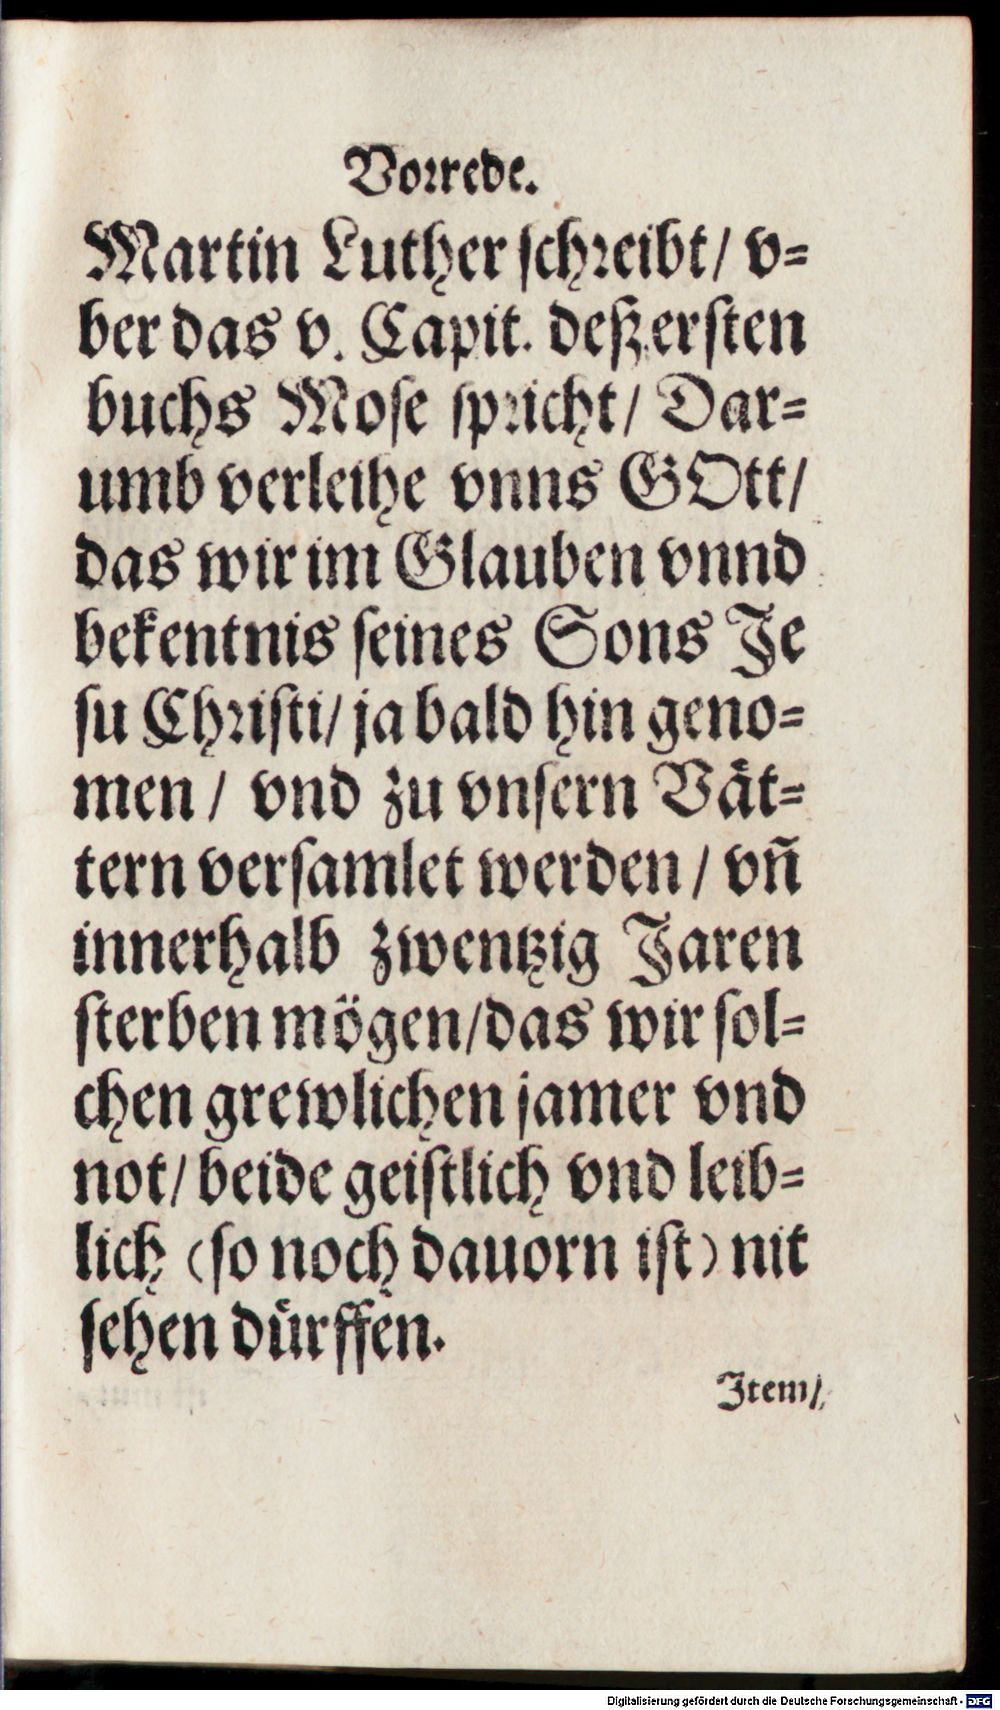 Vorrede.
Martin Luther schreibt/ v-
ber das v. Capit. deß ersten
buchs Mose spricht/ Dar-
umb verleihe vnns GOtt/
das wir im Glauben vnnd
bekentnis seines Sons Je
su Christi/ ja bald hin geno-
men / vnd zu vnsern Vät-
tern versamlet werden / vñ
innerhalb zwentzig Jaren
sterben mögen/das wir sol-
chen grewlichen jamer vnd
not/ beide geistlich vnd leib-
lich (so noch dauorn ist) nit
sehen dürffen.
Item/
Digitalisierung gefördert durch die Deutsche Forschungsgemeinschaft - DFG